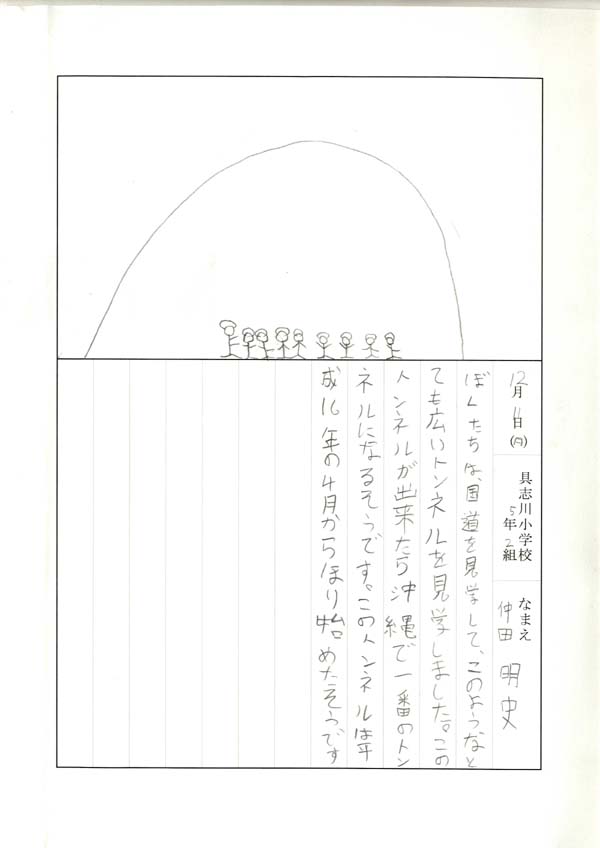 12月11日(月) 具志川小学校 5年2組 なまえ 仲田明史
ぼくたちは、国道を見学して、このようなと
ても広いトンネルを見学しました。この
トンネルが出来たら沖縄で一番のトン
ネルになるそうです。このトンネルは平
成16年の4月からほり始めたそうです